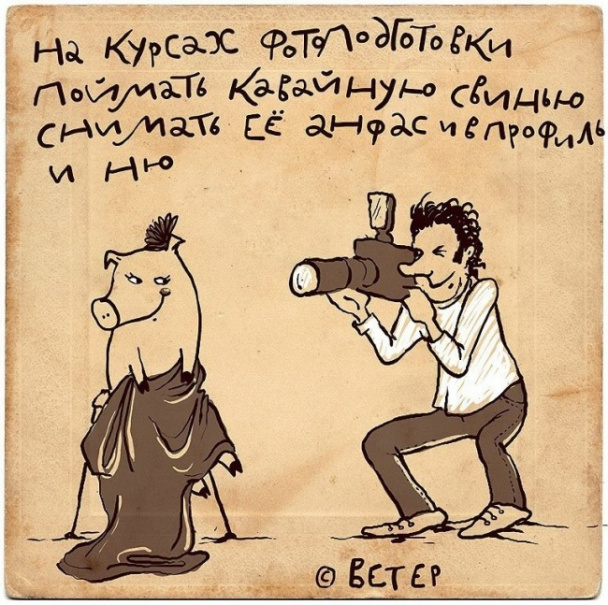 На курсах фотоподготовки
поймать кавайную свинью
снимать её анфас и в профиль
и ню
© ВЕТЕР